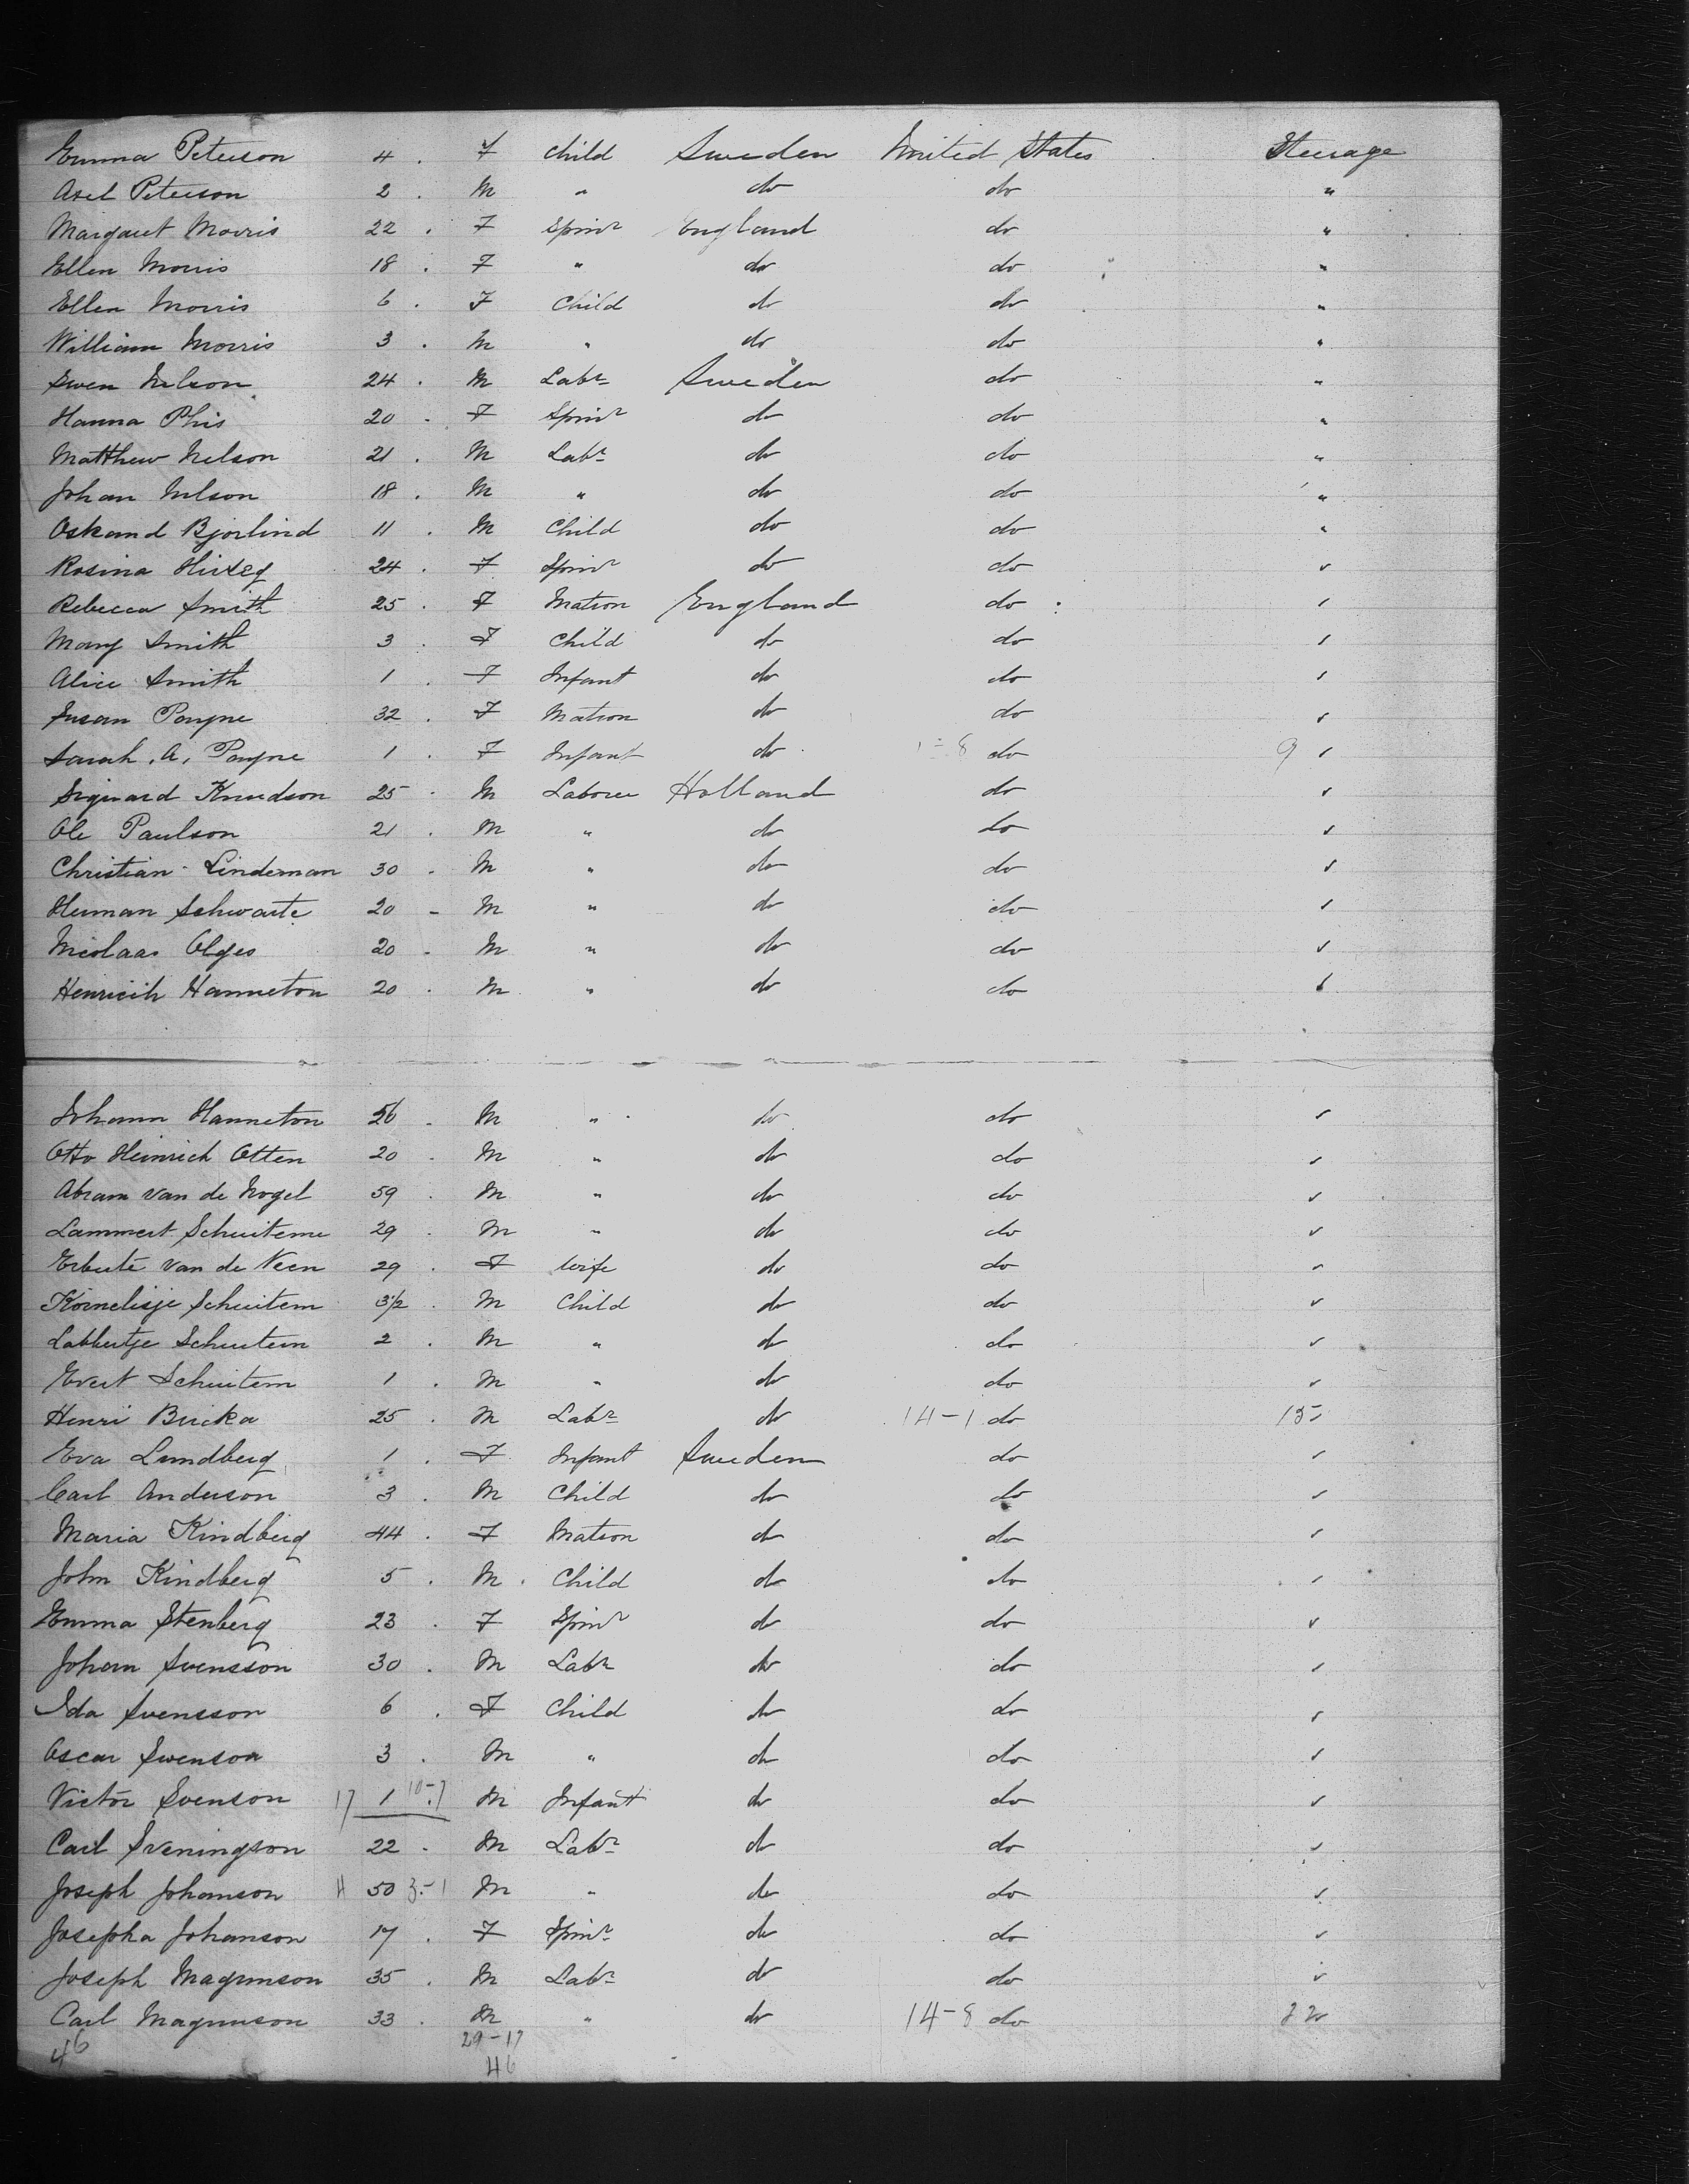 Emma Peterson 4 . F Child Sweden United States Steerage
Axel Peterson 2 . M " do do "
Margaret Morris 22 . F Spinr England do "
Ellen Morris 18 . F " do do "
Ellen Morris 6 . F Child do do "
William Morris 3 . M " do do "
Swen Nelson 24 . M Labr Sweden do "
Hanna Phis 20 . F Spinr do do "
Matthew Nelson 21 . M Labr do do "
Johan Nelson 18 . M " do do "
Oskand Bjorlind 11 . M Child do do "
Rosina 24 . F Spinr do do "
Rebecca Smith 25 . F Matron England do "
Mary Smith 3 . F Child do do "
Alice Smith 1 . F Infant do do "
Susan Payne 32 . F Matron do do "
Sarah . A. Payne 1 . F Infant do 1-8 do 9 "
Sigward Knudson 25 . M Laborer Holland do "
Ole Paulson 21 . M " do do "
Christian Lindeman 30 . M " do do "
Herman Schwarte 20 - M " do do "
Nicolaas Olges 20 - M " do do "
Henricih Hanneton 20 . M " do do "
Johann Hanneton 56 . M " do do "
Otto Heinrich Otten 20 . M " do do "
Abram van de Nogel 59 . M " do do "
Lammert Schuiteme 29 . M " do do "
van de Veen 29 . F Wife do do "
Kornelisje Schuitem 3 1/2 . M Child do do "
Labbertje Schuitem 2 . M " do do "
Evert Schuitem 1 . M " do do "
Henri Bucka 25 . M Labr do 14-1 do 15 "
Eva Lundberg 1 . F Infant Sweden do "
Carl Anderson 3 . M Child do do "
Maria Kindberg 44 . F Matron do do "
John Kindberg 5 . M . Child do do "
Emma Stenberg 23 . F Spinr do do "
Johan Svensson 30 . M Labr do do "
Ida Svensson 6 . F Child do do "
Oscar Swenson 3 . M " do do "
Victor Svenson 17 1 10-7 M Infant do do "
Carl Sveningson 22 . M Labr do do "
Joseph Johanson 4 50 3-1 M " do do "
Josepha Johanson 17 . F Spinr do do "
Joseph Magnnson 35 . M Labr do do "
Carl Magnuson 33 . M " do 14-8 do 22 "
46 29-17
46